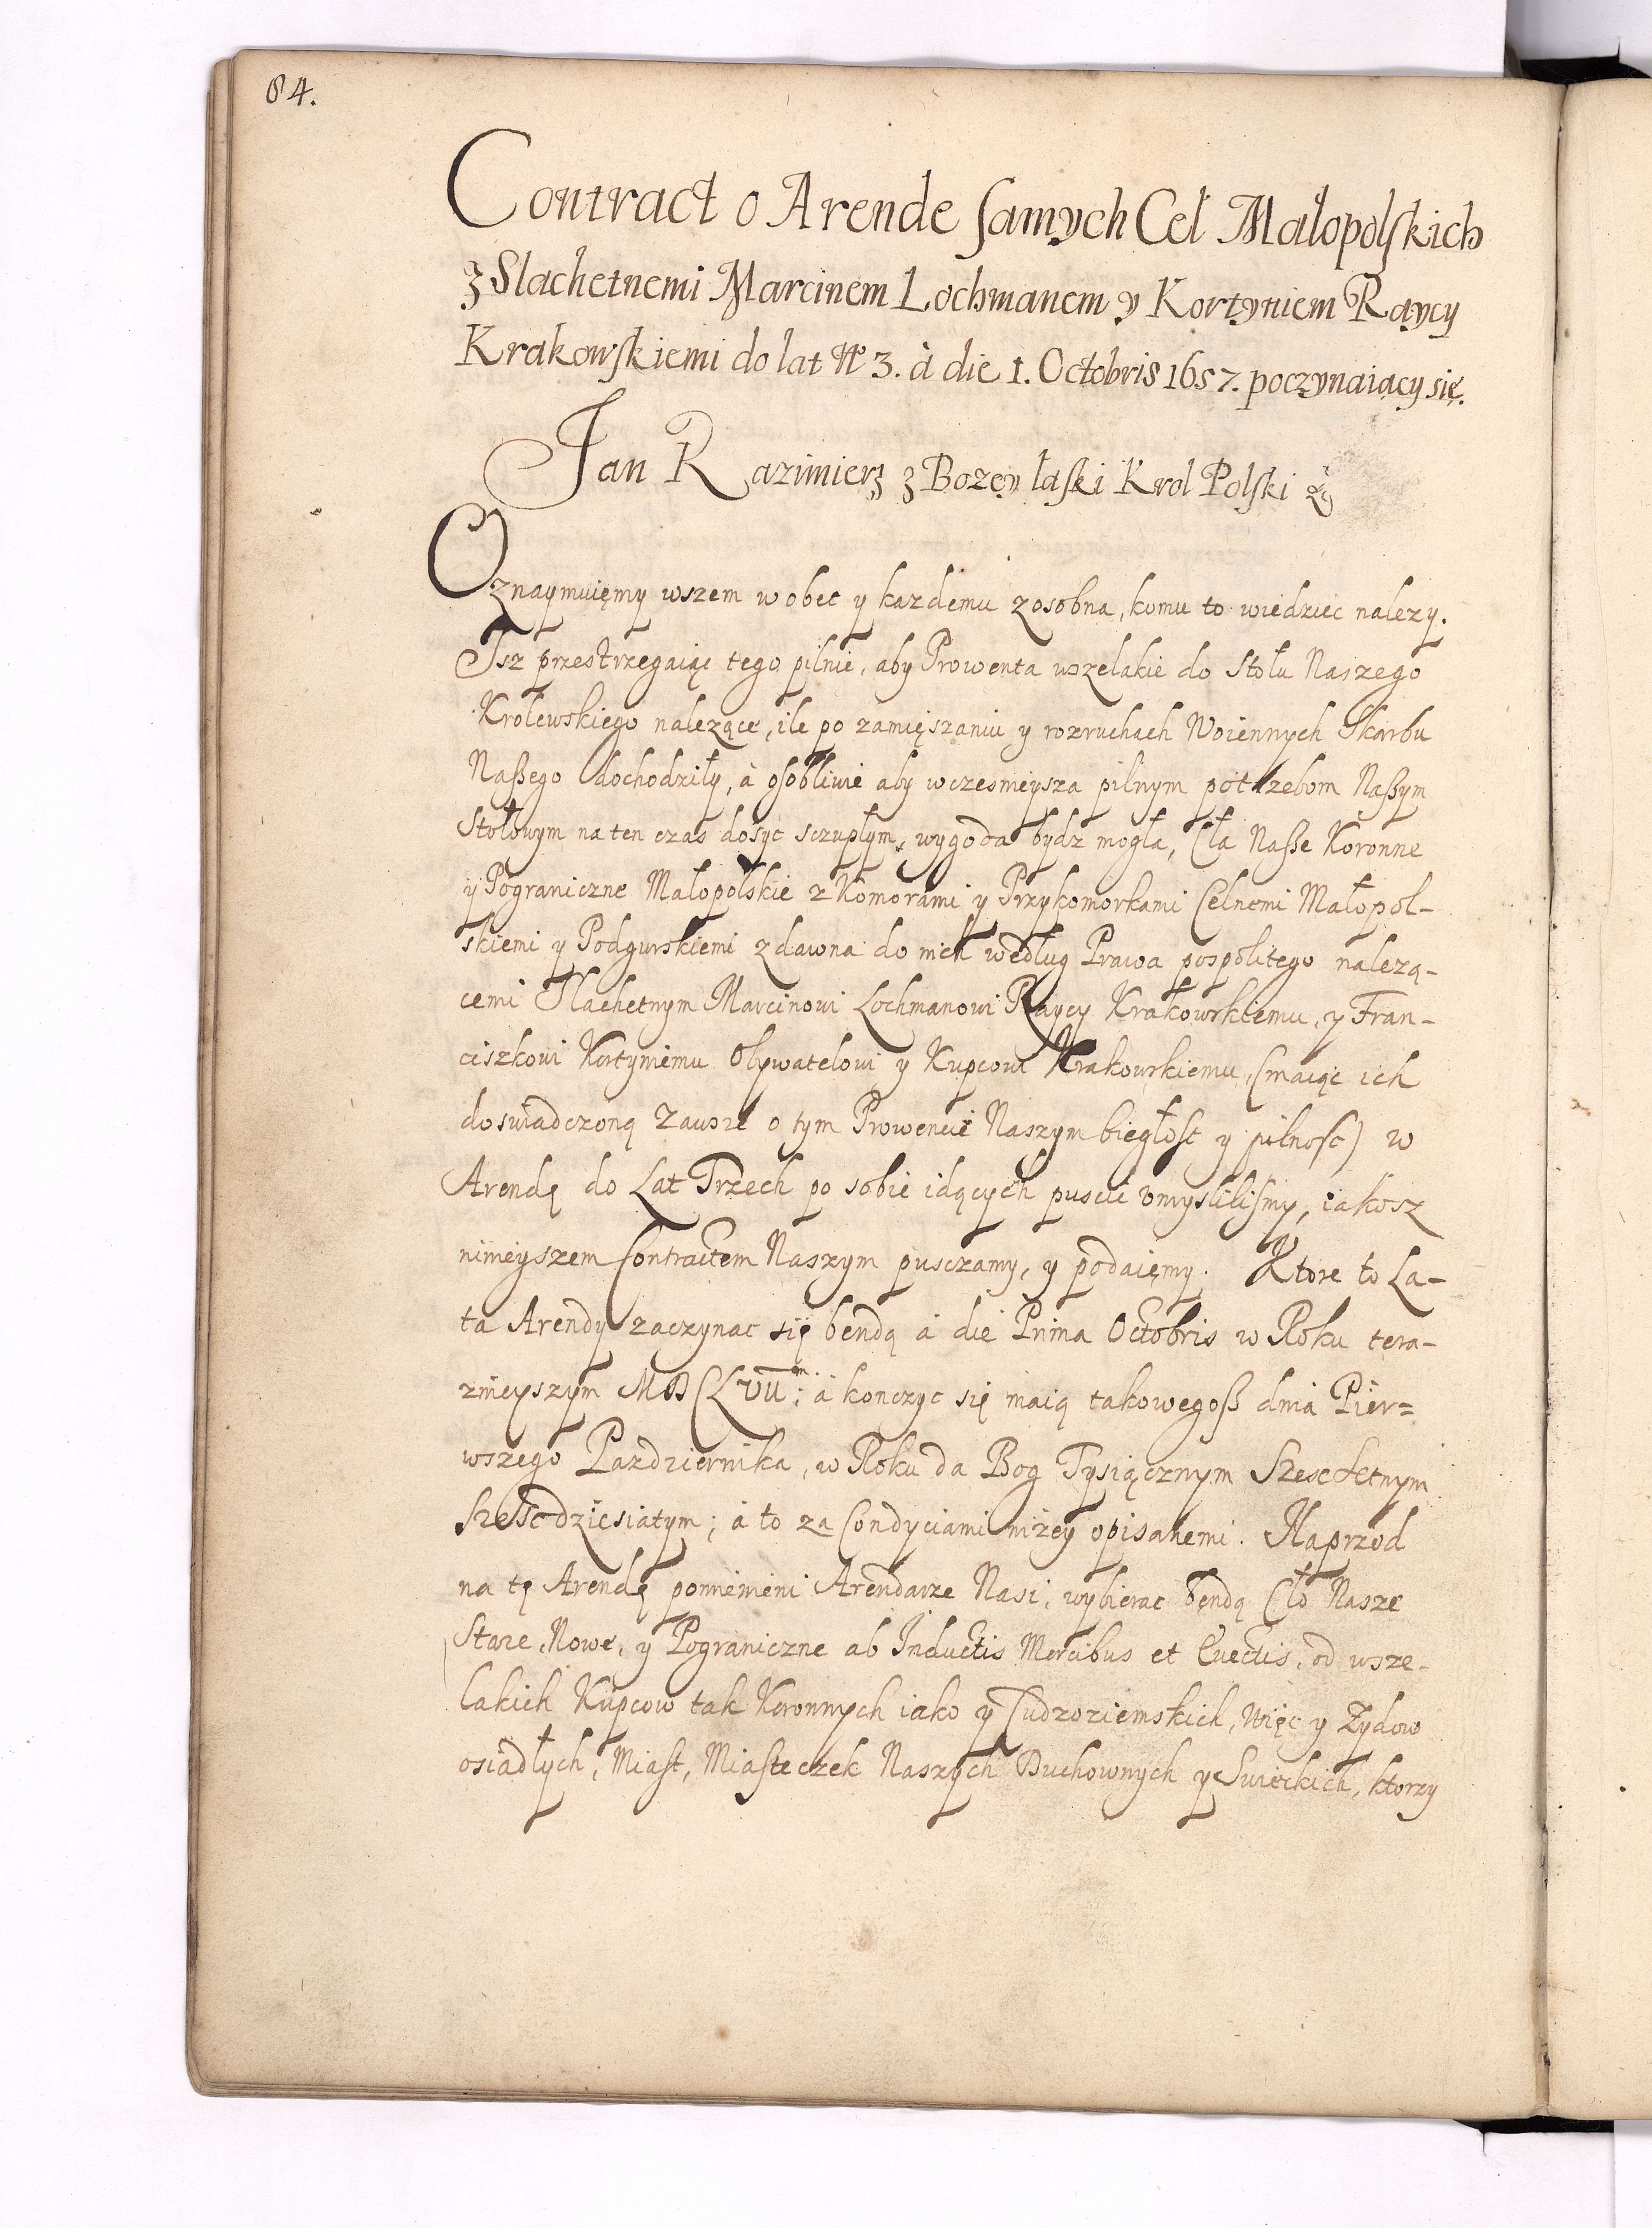 84.
Contract o Arende samych Ceł Małopolskich
z Slachetnemi Marcinem Lochmanem y Kortyniem Raycy
Krakowskiemi do lat No 3. à die 1. Octobris 1657. poczynaiący się.
Jan Kazimierz z Bozey łaski Krol Polski &c
Oznaymuięmy wszem w obec y kazdemu zosobna, komu to wiedziec nalezy.
Isz przestrzegaiąc tego pilnie, aby Prowenta wszelakie do Stołu Naszego
Krolewskiego nalezące, ile po zamięszaniu y rozruchach Woiennych Skarbu
Naßego dochodziły, à osobliwie aby wczesnieysza pilnym potrzebom Naßym
Stołowym na ten czas dosyc sczupłym, wygoda bydz mogła, Cła Naße Koronne
y Pograniczne Małopolskie z Komorami y Przykomorkami Celnemi Małopol-
skiemi y Podgurskiemi zdawna do nich według Prawa pospolitego nalezą-
cemi Slachetnym Marcinowi Lochmanowi Raycy Krakowskiemu, y Fran-
ciszkowi Kortyniemu Obywatelowi y Kupcowi Krakowskiemu, (maiąc ich
doswiadczoną zawsze o tym Prowencie Naszym biegłosc y pilnosc) w
Arendę do Lat Trzech po sobie idących puscic umyslilismy, iakosz
ninieyszem Contractem Naszym pusczamy, y podaięmy. Ktore to La-
ta Arendy zaczynac się bendą à die Prima Octobris w Roku tera-
znieyszym MDCLVII^m; à konczyc się maią takowegoß dnia Pier=
wszego Pazdziernika, w Roku da Bog Tysiącznym Szescsetnym
Szescdziesiatym; à to za Condyciami nizey opisanemi. Naprzod
na tę Arendę pomienieni Arendarze Nasi, wybierac bendą Cło Nasze
Stare, Nowe, y Pograniczne ab Inductis Mercibus et Evectis, od wsze-
lakich Kupcow tak Koronnych iako y Cudzoziemskich, Więc y Zydow
osiadłych, Miast, Miasteczek Naszych Duchownych y Swieckich, ktorzy